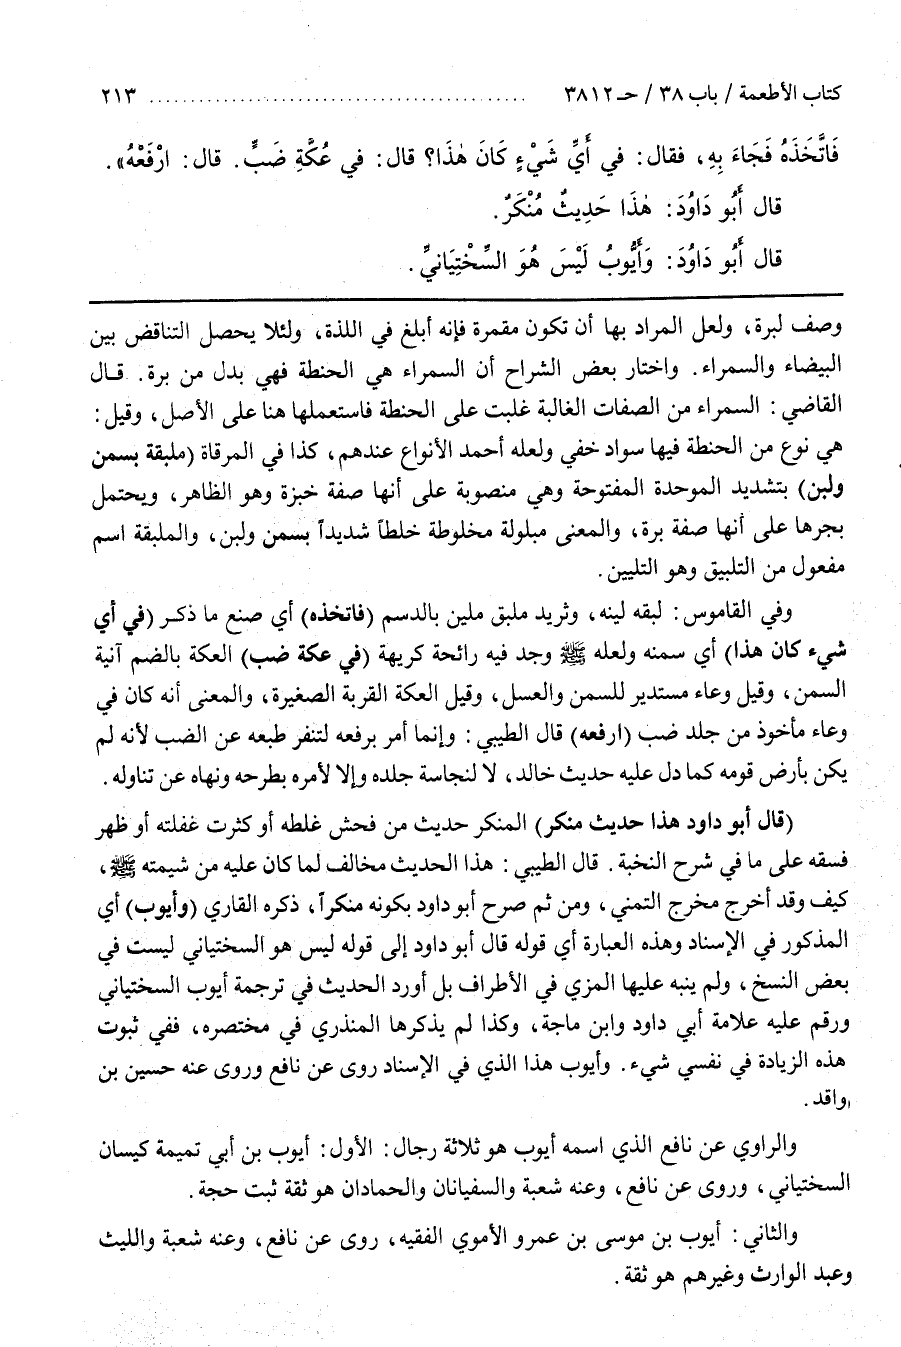 كتاب الأطعمة / باب ٣٨ / حـ ٣٨١٢ ........................................ ٢١٣
فَاتَّخَذَهُ فَجَاءَ بِهِ، فقال: في أَيِّ شَيْءٍ كَانَ هٰذَا؟ قال: في عُكَّةِ ضَبٍّ. قال: ارْفَعْهُ».
قال أَبُو دَاوُدَ: هٰذَا حَدِيثٌ مُنْكَرٌ.
قال أَبُو دَاوُدَ: وَأَيُّوبُ لَيْسَ هُوَ السِّخْتِيَانيِّ.
وصف لبرة، ولعل المراد بها أن تكون مقمرة فإنه أبلغ في اللذة، ولئلا يحصل التناقض بين
البيضاء والسمراء. واختار بعض الشراح أن السمراء هي الحنطة فهي بدل من برة. قـال
القاضي: السمراء من الصفات الغالبة غلبت على الحنطة فاستعملها هنا على الأصل، وقيل:
هي نوع من الحنطة فيها سواد خفي ولعله أحمد الأنواع عندهم، كذا في المرقاة (ملبقة بسمن
ولبن) بتشديد الموحدة المفتوحة وهي منصوبة على أنها صفة خبزة وهو الظاهر، ويحتمل
بجرها على أنها صفة برة، والمعنى مبلولة مخلوطة خلطاً شديداً بسمن ولبن، والملبقة اسم
مفعول من التلبيق وهو التليين.
وفي القاموس: لبقه لينه، وثريد ملبق ملين بالدسم (فاتخذه) أي صنع ما ذكـر (في أي
شيء كان هذا) أي سمنه ولعله ﷺ وجد فيه رائحة كريهة (في عكة ضب) العكة بالضم آنية
السمن، وقيل وعاء مستدير للسمن والعسل، وقيل العكة القربة الصغيرة، والمعنى أنه كان في
وعاء مأخوذ من جلد ضب (ارفعه) قال الطيبي: وإنما أمر برفعه لتنفر طبعه عن الضب لأنه لم
يكن بأرض قومه كما دل عليه حديث خالد، لا لنجاسة جلده وإلا لأمره بطرحه ونهاه عن تناوله.
(قال أبو داود هذا حديث منكر) المنكر حديث من فحش غلطه أو كثرت غفلته أو ظهر
فسقه على ما في شرح النخبة. قال الطيبي: هذا الحديث مخالف لما كان عليه من شيمته ﷺ،
كيف وقد أخرج مخرج التمني، ومن ثم صرح أبو داود بكونه منكراً، ذكره القاري (وأيوب) أي
المذكور في الإسناد وهذه العبارة أي قوله قال أبو داود إلى قوله ليس هو السختياني ليست في
بعض النسخ، ولم ينبه عليها المزي في الأطراف بل أورد الحديث في ترجمة أيوب السختياني
ورقم عليه علامة أبي داود وابن ماجة، وكذا لم يذكرها المنذري في مختصره، ففي ثبوت
هذه الزيادة في نفسي شيء. وأيوب هذا الذي في الإسناد روى عن نافع وروى عنه حسين بن
واقد.
والراوي عن نافع الذي اسمه أيوب هو ثلاثة رجال: الأول: أيوب بن أبي تميمة كيسان
السختياني، وروى عن نافع، وعنه شعبة والسفيانان والحمادان هو ثقة ثبت حجة.
والثاني: أيوب بن موسى بن عمرو الأموي الفقيه، روى عن نافع، وعنه شعبة والليث
وعبد الوارث وغيرهم هو ثقة.